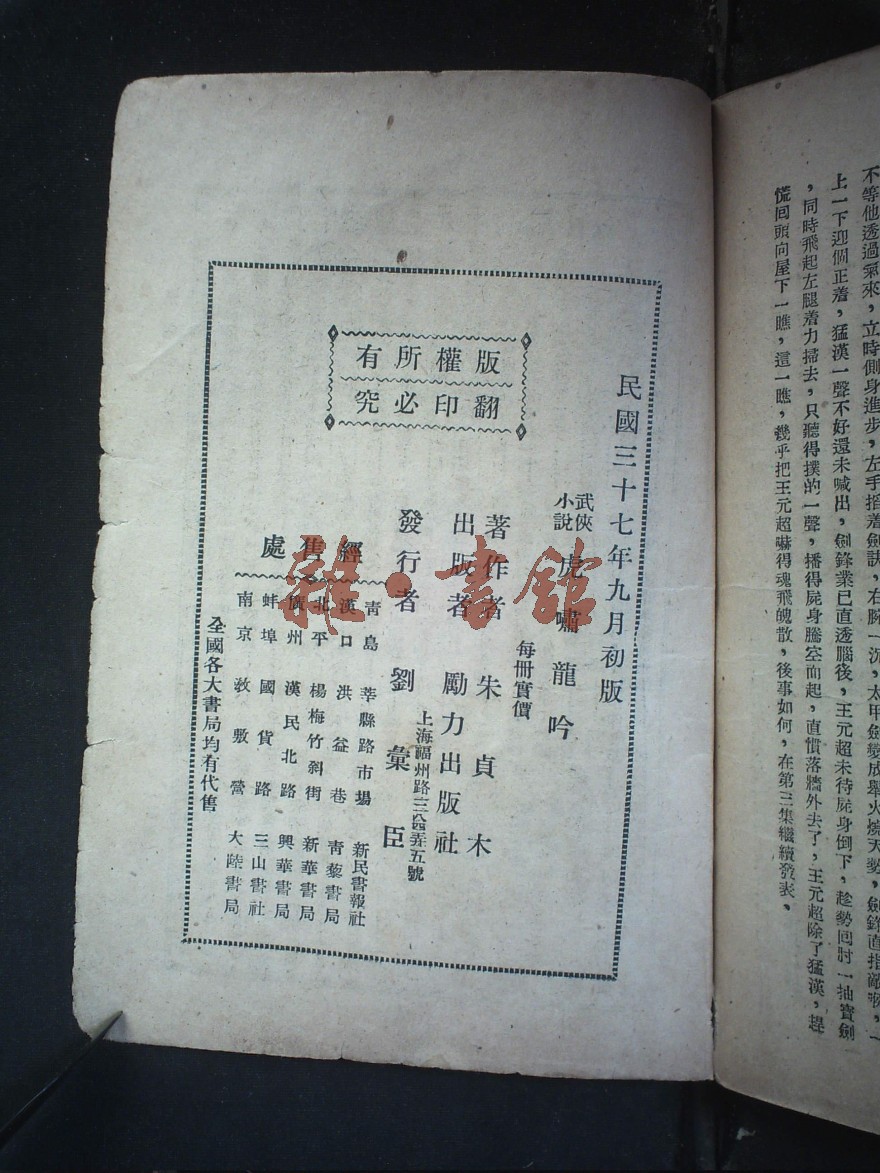 不等他透過氣來，立時側身進步，左手掐着劍訣，右腕一沉，太甲劍變成舉火燒天勢，劍鋒直指敵咽，一
上一下迎個正着，猛漢一聲不好還未喊出，劍鋒業已直透腦後，王元超未待屍身倒下，趁勢囘肘一抽寶劍
，同時飛起左腿着力掃去，只聽得撲的一聲，播得屍身騰空而起，直慣落牆外去了，王元超除了猛漢，趕
慌囘頭向屋下一瞧，這一瞧，幾乎把王元超嚇得魂飛魄散，後事如何，在第三集繼續發表。
民國三十七年九月初版
版權所有
翻印必究
武俠小說 虎嘯龍吟
每冊實價
著作者 朱貞木
出版者 勵力出版社
上海福州路三八四弄五號
發行者 劉彙臣
經售處
青島 莘縣路市場 新民書報社
漢口 洪益巷 青藜書局
北平 楊梅竹斜街 新華書局
廣州 漢民北路 興華書局
蚌埠 國貨路 三山書社
南京 敦敷營 大陸書局
全國各大書局均有代售
雜·書館